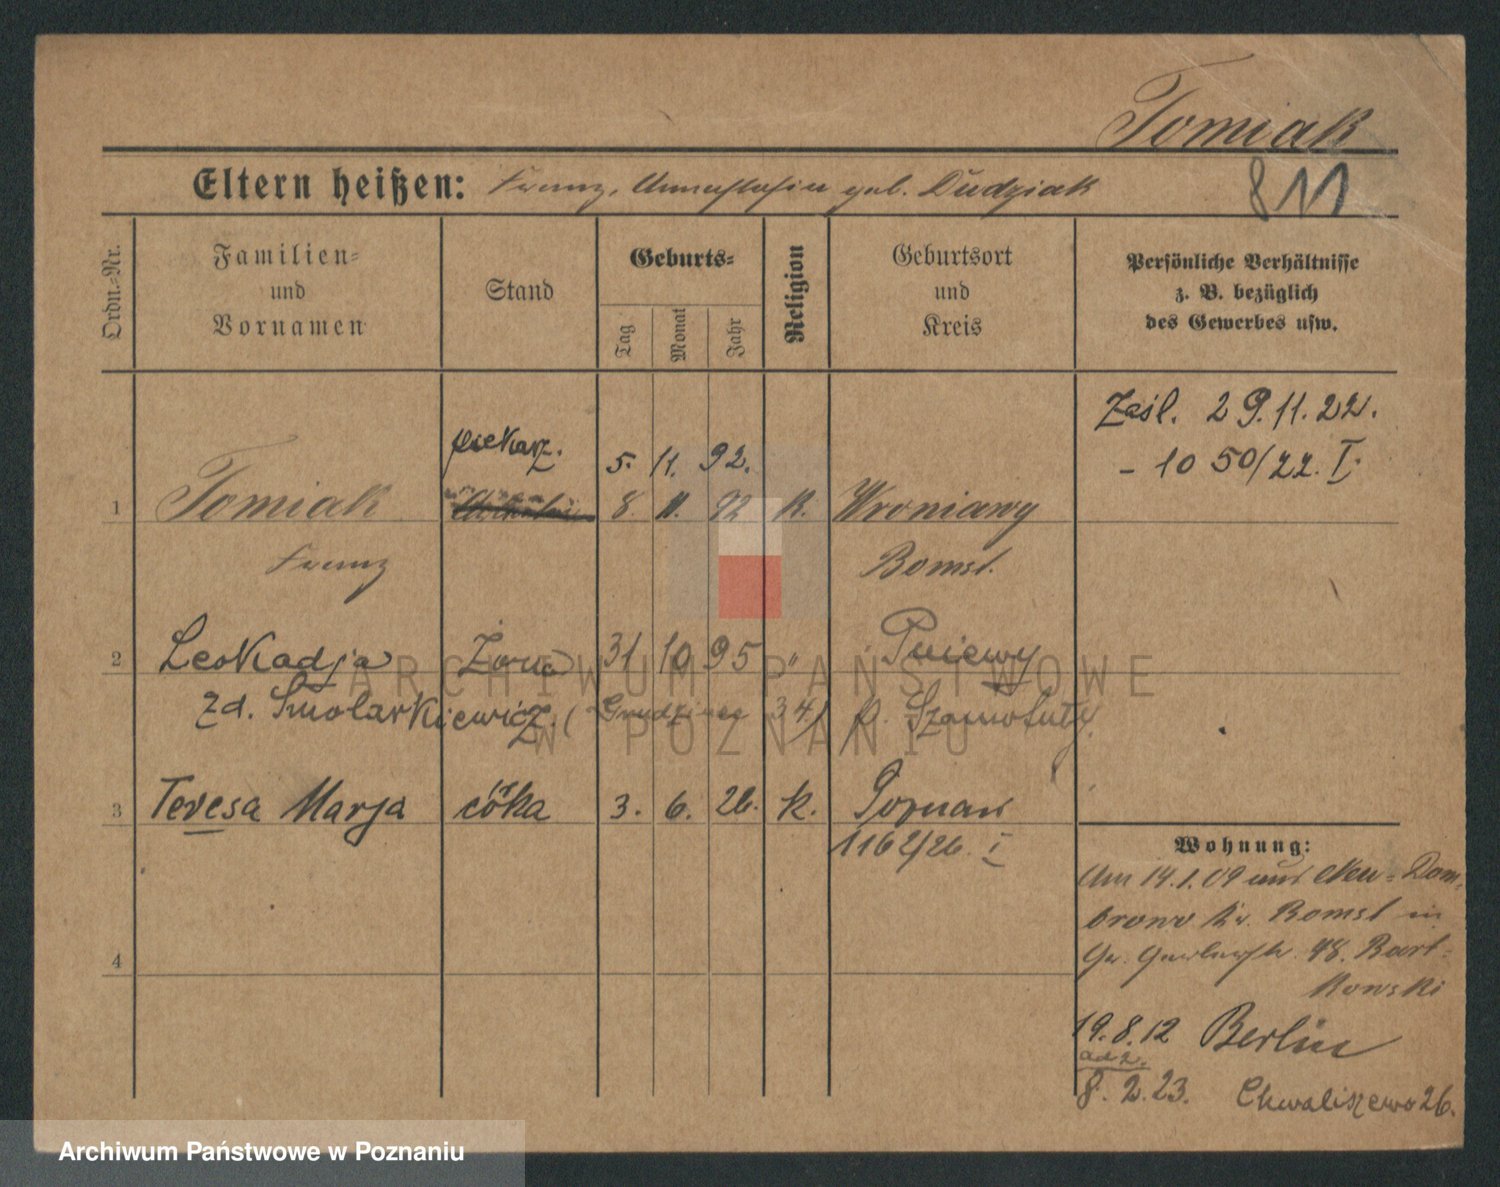 Tomiak
Eltern heißen: Franz, Annastasia geb. Dudziak
811
Ordn.-Nr.
Familien-
und
Vornamen
Stand
Geburts-
Tag
Monat
Jahr
Religion
Geburtsort
und
Kreis
Persönliche Verhältnisse
z. B. bezüglich
des Gewerbes usw.
Zaśl. 29.11.22.
- 1050/22. I.
piekarz. 5. 11. 92.
1 Tomiak 8. 11. 92 K. Wroniawy
Franz Bomst.
2 Leokadja żona 31 10 95 " Pniewy
zd. Smolarkiewicz. ( Grudzieniec 34) p. Szamotuły.
3 Teresa Marja córka 3. 6. 26. k. Poznań
1162/26. I
4
Wohnung:
Am 14.1.09 aus Neu-Dom-
browo Kr. Bomst in
Gr. Gerberstr. 48. Bart-
kowski
19.8.12 Berlin
ad 2.
8. 2. 23. Chwaliszewo 26.
ARCHIWUM PAŃSTWOWE
W POZNANIU
Archiwum Państwowe w Poznaniu